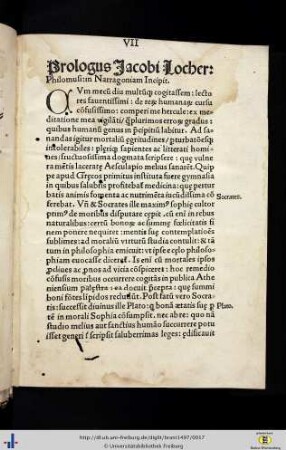 VII
Prologus Jacobi Locher:
Philomusi: in Narragoniam Incipit.
CVm mecũ diu multũq; cogitassem: lecto
res fauentissimi: de reɽ humanaɽ cursu
cõfusissimo: comperi me hercule: ex me
ditatione mea vigilãti/ q̃plurimos erroɽ gradus:
quibus humanũ genus in p̃cipitiũ labitur. Ad sa
nandas igitur mortaliũ ęgritudines/ ꝑturbatiõesq;
intolerabiles: pleriq; sapientes ac litterati homi-
nes: fructuosissima dogmata scripsere: que vulne
ra mẽtis laceratę Aesculapio melius sanarẽt. Quip
pe apud Gręcos primitus instituta fuere gymnasia
in quibus salubris profitebat͛ medicina: que pertur
batis animis fomenta ac nutrimẽta incũdissima cõ
ferebat. Vñ & Socrates ille maxim⁹ sophię cultor
prim⁹ de moribus disputare cępit. cũ eni in rebus
naturalibus: certũ bonoɽ ac summę fœlicitatis fi
nem ponere nequiret: mentis suę contemplatiões
sublimes: ad moraliũ virtutũ studia contulit: & tã
tum in philosophia emicuit: vt ipse e cęlo philoso-
phiam euocasse diceret͛. Is eni cũ mortales ipsos
Socrates.
ꝓliues ac ꝓnos ad vicia cõspiceret: hoc remedio
cõfusis moribus occurrere cogitãs in publica Athe
niensium palęstra: ea docuit p̃cepta: que summi
boni fõtes lipidos redusũt. Post fatũ vero Socra-
tis: successit diuinus ille Plato: q̃ bonã ætatis suę ꝑ
tẽ in morali Sophia cõsumpsit. nec abre: quo nã
studio melius aut sanctius humão succurrere potu
isset generi/ scripsit saluberrimas leges: ędificauit
Plato.
http://dl.ub.uni-freiburg.de/diglit/brant1497/0017
© Universitätsbibliothek Freiburg